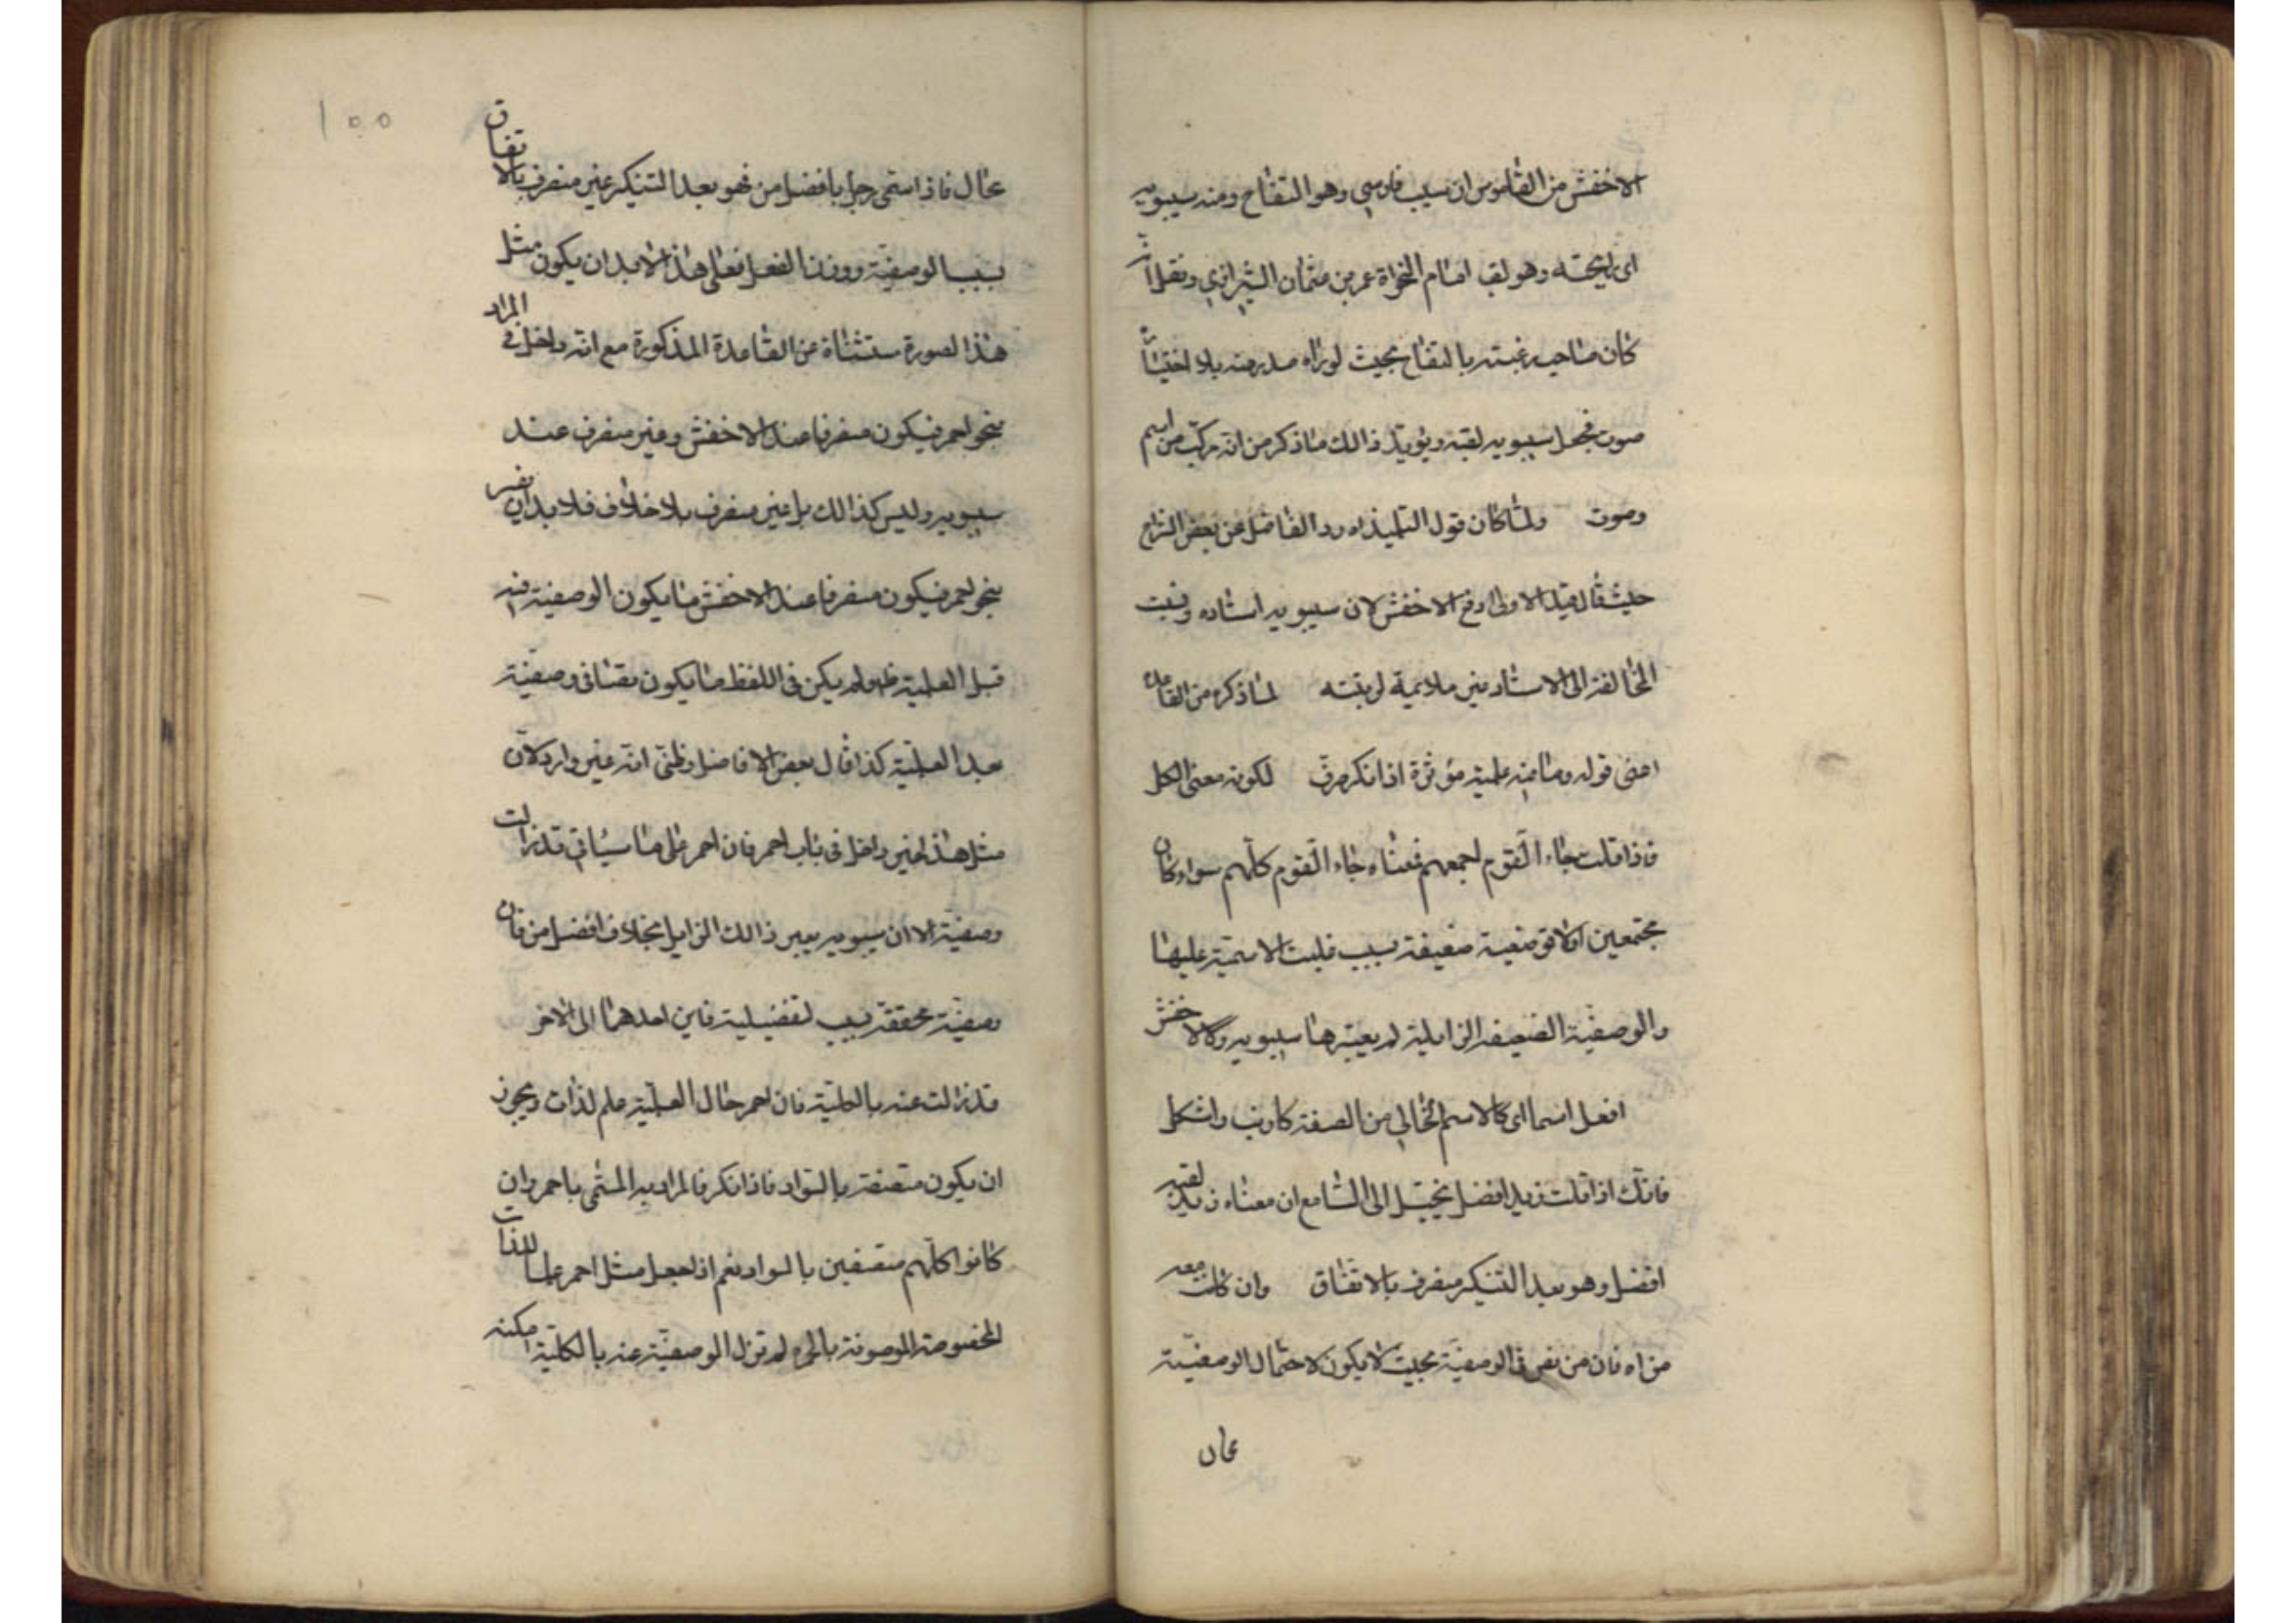 الاخفش من القاموس ان سيب فارسي وهو التفاح ومنه سيبويه
اى رايحته وهو لقب امام النحاة عمر بن عثمان الشيرازي ونقل انه
كان صاحب رغبته بالتفاح بحيث لو راه صدر منه بلا اختيار
صوت فجعل سيبويه لقبه ويؤيد ذالك ما ذكر من انه مركب من اسم
وصوت ولما كان قول التلميذ اه رد الفاضل عن بعض الشراح
حيث قال قيل الاولى رفع الاخفش لان سيبويه استاده ونسبت
المخالفة الى الاستاد غير ملايمة لرتبته لما ذكره من القاعدة
اعنى قوله وما فيه علمية مؤثرة اذا نكر صرف لكونه معنى الكل
فاذا قلت جاء القوم اجمعهم فمعناه جاء القوم كلهم سواء كان
مجتمعين او لا فوصفية ضعيفة بسبب غلبت الاسمية عليها
والوصفية الضعيفه الزايلية لم يعتبرها سيبويه وكالاخفش
افعل اسما اى كالاسم الخالي من الصفة كارنب واشكل
فانك اذا قلت زيد افضل يخيل الى السامع ان معناه زيد لقبه
افضل وهو بعد التنكير منصرف بالاتفاق وان كانت معه
من اه فان من نص فى الوصفية بحيث لا يكون لاحتمال الوصفية
عال
١٠٠
عال فاذا سمى رجل بافضل من فهو بعد التنكير غير منصرف بالاتفاق
بسبب الوصفية ووزن الفعل فعلى هذا لابد ان يكون مثل
هذا لصورة ستثناة عن القاعدة المذكورة مع انه داخل فى المراد
بنحو احمر فيكون منصرفا عند الاخفش وغير منصرف عند
سيبويه وليس كذالك بل غير منصرف بلا خلاف فلا بد ان يفسر
بنحو احمر فيكون منصرفا عند الاخفش ما يكون الوصفية فيه
قبل العلمية ظه ولم يكن فى اللفظ ما يكون يقتانى وصفية
بعد العلمية كذا قال بعض الافاضل وظنى انه غير وارد لان
مثل هذا غير داخل فى باب احمر فان احمر على ما سياتي قد زالت
وصفية الا ان سيبويه يعبر ذالك الزايل بخلاف افضل من فان
وصفية محققة بسبب لتفضيلية فاين احدهما الى الاخر
قد زالت عنه بالكلية فان احمر حال العلمية علم لذات ويجوز
ان يكون متصفة بالسواد فاذا نكر فالمراد به المسمى باحمر وان
كانوا كلهم متصفين بالسواد نعم اذا جعل مثل احمر علما للذات
المخصوصة الموصوفة بالحمره لم تزل الوصفية عنه بالكلية امكنه